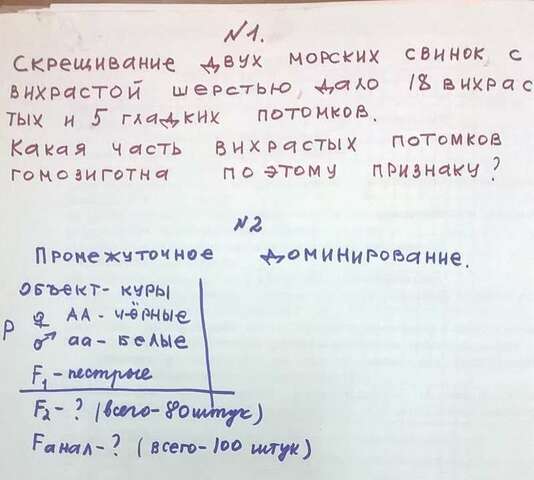 №1.
Скрещивание двух морских свинок с
вихрастой шерстью, дало 18 вихрас
тых и 5 гладких потомков.
Какая часть вихрастых потомков
гомозиготна по этому признаку?
№2
Промежуточное доминирование.
Объект - куры
P ♀ AA - чёрные
♂ aa - белые
F1 - пестрые
F2 - ? (всего - 80 штук)
Fанал - ? (всего - 100 штук)